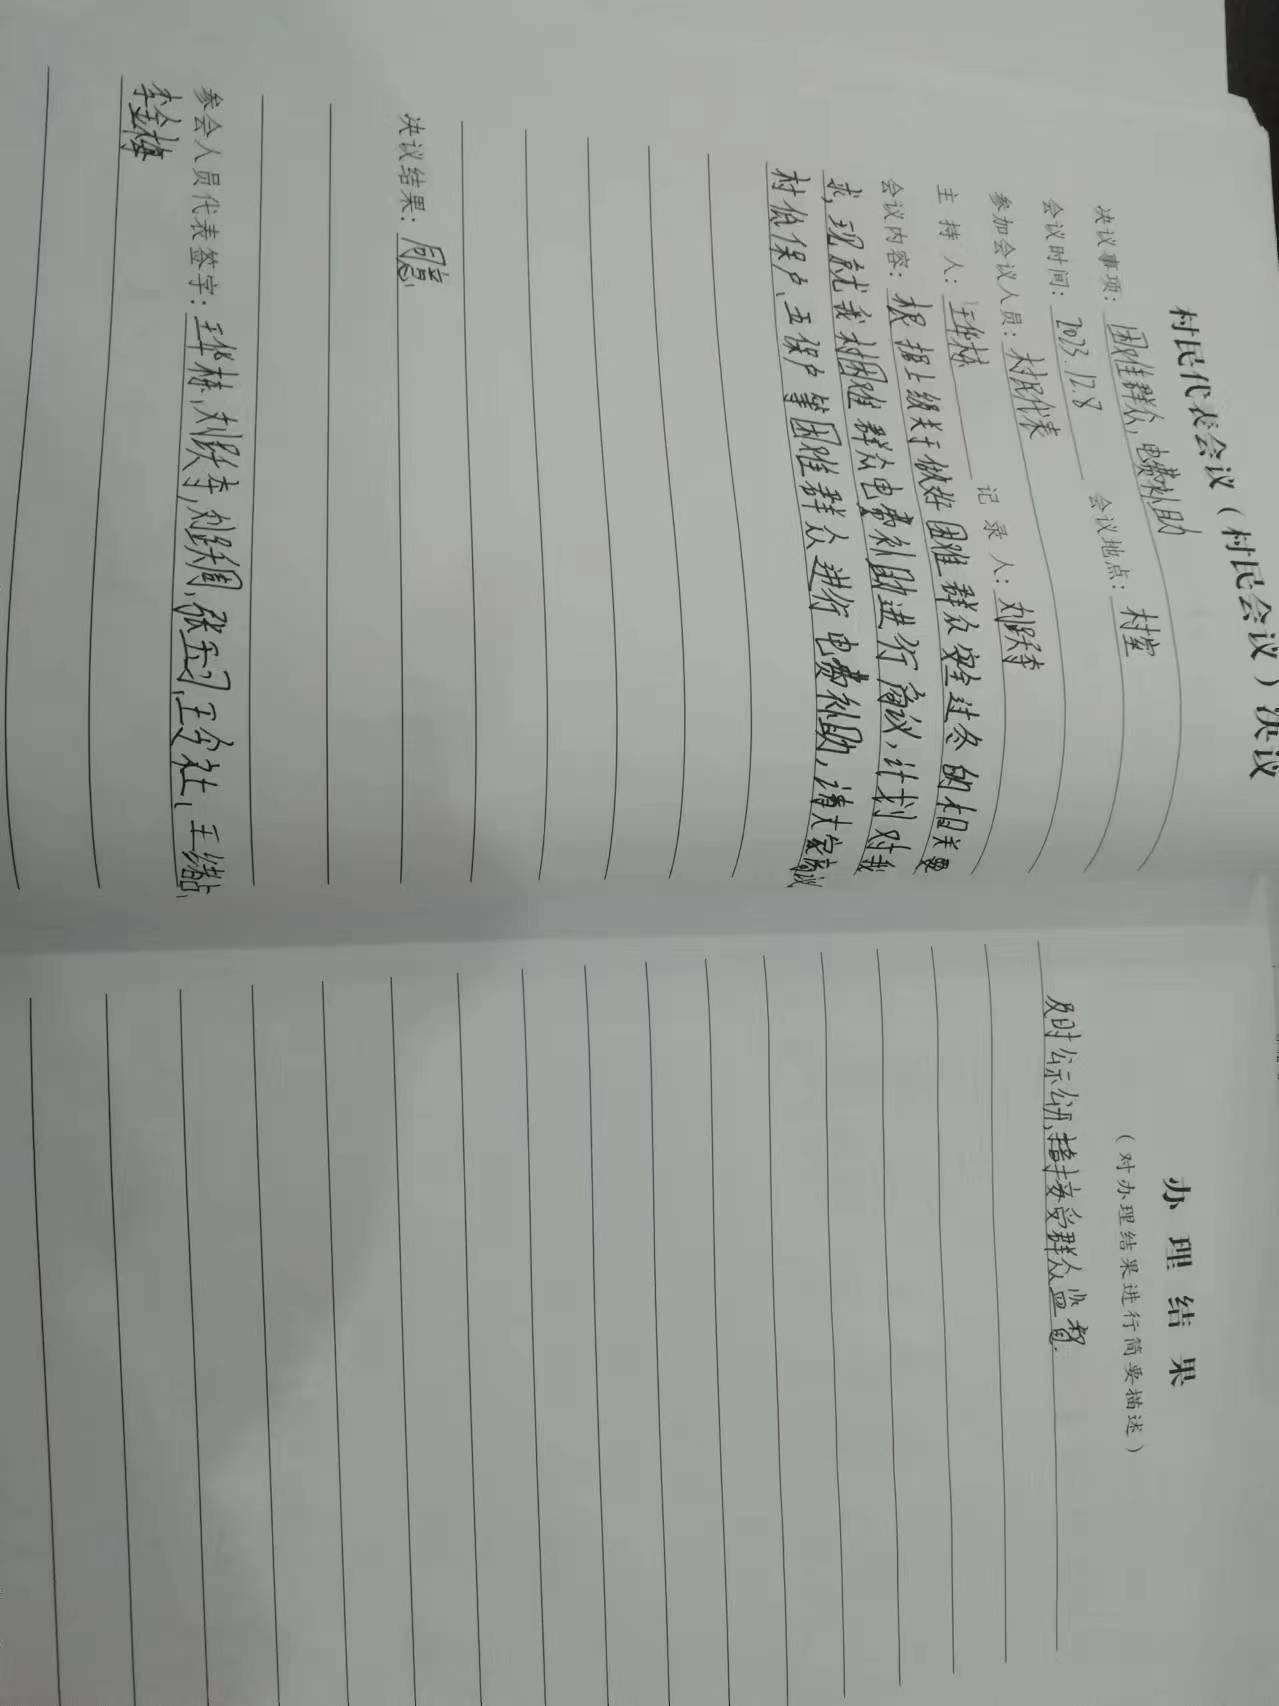 村民代表会议（村民会议）决议
决议事项：困难群众电费补助
会议时间：2023.12.8 会议地点：村室
参加会议人员：村民代表
主 持 人：王华林 记 录 人：刘跃李
会议内容：根据上级关于做好困难群众安全过冬的相关要
求，现就我村困难群众电费补助进行商议，计划对我
村低保户、五保户等困难群众进行电费补助，请大家商议
决议结果：同意
参会人员代表签字：王华林、刘跃李、刘跃周、张五习、王令社、王结占
李金梅
办理结果
（对办理结果进行简要描述）
及时公示公开，接受群众监督.